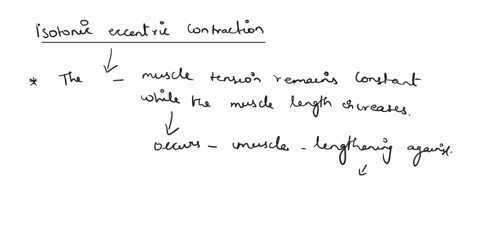 isotonic eccentric contraction
* The - muscle tension remains constant
while the muscle length increases.
occurs - muscle - lengthening against.